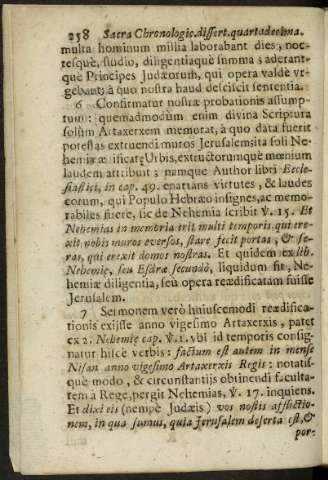 258 Sacra Chronologic. dissert. quartadecima.
multa hominum millia laborabant dies, noc-
tesquè, studio, diligentiaquè summa; aderant-
què Principes Judæorum, qui opera valdè vr-
gebant; à quo nostra haud desciscit sententia.
6 Confirmatur nostræ probationis assump-
tum: quemadmodùm enim divina Scriptura
solùm Artaxerxem memorat, à quo data fuerit
potestas extruendi muros Jerusalem; ita soli Ne-
hemiæ ædificatę Urbis, extructorumquè mœnium
laudem attribuit; namque Author libri Eccle-
siastici, in cap. 49. enarrans virtutes, & laudes
eorum, qui Populo Hebræo insignes, ac memo-
rabiles fuere, sic de Nehemia scribit ℣. 15. Et
Nehemias in memoria erit multi temporis qui ere-
xit nobis muros eversos, & stare fecit portas, & se-
ras, qui erexit domos nostras. Et quidem ex lib.
Nehemię, seu Esdræ secundò, liquidum fit, Ne-
hemiæ diligentia, seu opera reædificatam fuisse
Jerusalem.
7 Sermonem verò huiuscemodi reædifica-
tionis exijsse anno vigesimo Artaxerxis, patet
ex 2. Nehemię cap. ℣. 1. vbi id temporis consig-
natur hisce verbis: factum est autem in mense
Nisan anno vigesimo Artaxerxis Regis: notatis-
què modo, & circunstantijs obtinendi faculta-
tem à Rege, pergit Nehemias, ℣. 17. inquiens.
Et dixi eis (nempè Judæis) vos nostis afflictio-
nem, in qua sumus, quia Jerusalem deserta est, &
por-